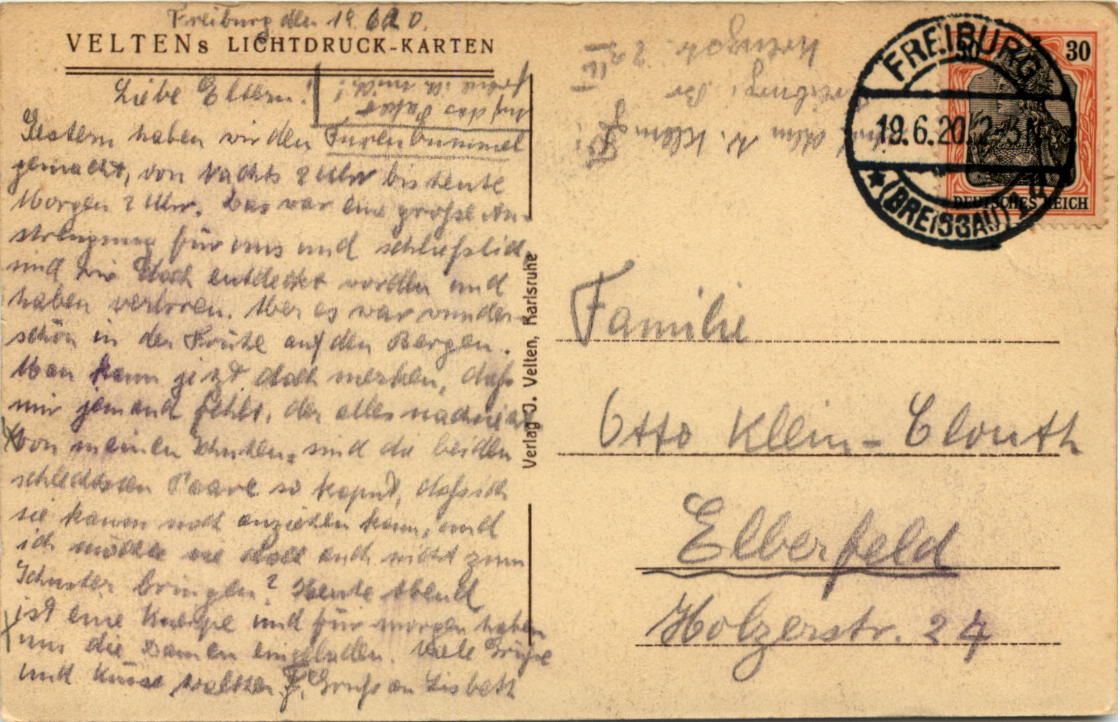 Freiburg den 19.6.20.
VELTENs LICHTDRUCK-KARTEN
Liebe Eltern!
Auf das Paket
freue ich mich!
Gestern haben wir den Furenbummel
gemacht, von Nachts 2 Uhr bis heute
Morgen 7 Uhr. Das war eine große An-
strengung für uns und schließlich
sind wir doch entdeckt worden und
haben verloren. Aber es war wunder-
schön in der Frühe auf den Bergen.
Man kann jetzt doch merken, daß
mir jemand fehlt, der alles nachsieht
von meinen Schuhen sind die beiden
schlechtesten Paare so kaput, daß ich
sie kaum noch anziehen kann, und
ich möchte sie doch auch nicht zum
Schuster bringen? Heute Abend
ist eine Kneipe und für morgen haben
wir die Damen eingeladen. Viele Grüße
und Küsse Walther. Gruß an Lisbeth
Verlag J. Velten, Karlsruhe
W. Klein
Freiburg i. Br
FREIBURG
19.6.20. 12-1 N.
★ (BREISGAU) 1
30 30
DEUTSCHES REICH
Familie
Otto Klein-Clouth
Elberfeld
Holzerstr. 24